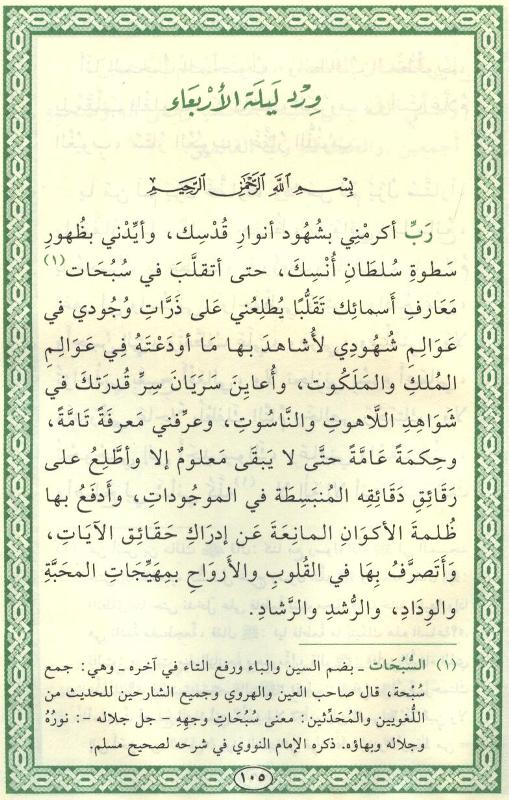 وِرْد لَيلَة الأَرْبعَاء
بِسْمِ اللهِ الرَّحْمَنِ الرَّحِيمِ
رَبِّ أكرمْنِي بشهُود أنوارِ قُدْسِك، وأيِّدْني بظُهورِ
سَطوةِ سُلطَانِ أُنْسِكَ، حتى أتقلَّبَ في سُبُحَات(١)
مَعَارفِ أَسمائِك تَقَلُّبًا يُطلِعُني عَلى ذَرَّاتِ وُجُودي في
عَوالِمِ شُهُودِي لأُشاهدَ بـها مَا أودَعْتَهُ فِي عَوالِمِ
المُلكِ والمَلَكُوت، وأُعايِنَ سَرَيَان سِرِّ قُدرَتكَ في
شَوَاهدِ اللَّاهوتِ والنَّاسُوتِ، وعرِّفني مَعرفةً تَامَّةً،
وحِكمَةً عَامَّةً حتَّى لا يَبقَى مَعلومٌ إلا وأطَّلِعُ على
رَقَائِقِ دَقَائِقِه المُنبَسِطَة في الموجُوداتِ، وأدفَعُ بها
ظُلمةَ الأكوَانِ المانِعَةَ عَن إدراكِ حَقَائِق الآيَاتِ،
وَأَتصرَّفُ بِهَا في القُلوبِ والأَروَاحِ بمهَيِّجَاتِ المحَبَّةِ
والوِدَادِ، والرُّشدِ والرَّشادِ.
(١) السُّبُحَات ـ بضم السين والباء ورفع التاء في آخره ـ وهي: جمع
سُبْحة، قال صاحب العين والهروي وجميع الشارحين للحديث من
اللُّغويين والمُحَدِّثين: معنى سُبُحَاتِ وجههِ ـ جل جلاله ـ: نورُهُ
وجلاله وبهاؤه. ذكره الإمام النووي في شرحه لصحيح مسلم.
١٠٥